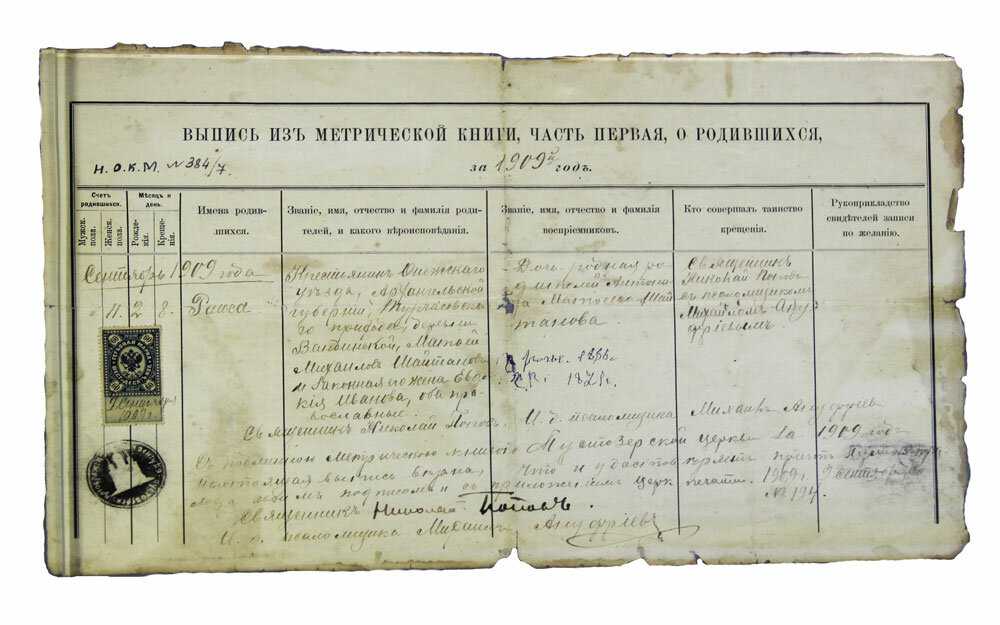 ВЫПИСЬ ИЗЪ МЕТРИЧЕСКОЙ КНИГИ, ЧАСТЬ ПЕРВАЯ, О РОДИВШИХСЯ,
Н.О.К.М. №384/7.
за 1909й годъ.
Счетъ родившихся.
Мѣсяцъ и день.
Мужск. пола.
Женск. пола.
Рожденія.
Крещенія.
Имена родившихся.
Званіе, имя, отчество и фамилія родителей, и какого вѣроисповѣданія.
Званіе, имя, отчество и фамилія воспріемниковъ.
Кто совершалъ таинство крещенія.
Рукоприкладство свидѣтелей записи по желанію.
Сентябрь 1909 года
2. 8. Раиса
Крестьянинъ Онежскаго
уѣзда, Архангельской
губерніи,
прихода, деревни
Матѳій
Михаиловъ Шайтановъ
и законная его жена Евдо
кія Иванова, оба пра
вославные.
Дочь родная ро
дителей Антони
на Матѳеева Шай
танова.
1898.
1879.
Священникъ
Николай Поповъ
съ псаломщикомъ
Михаиломъ Ану
фріевымъ.
Священникъ Николай Поповъ. И. д. псаломщика Михаилъ Ануфріевъ
Съ подлинною метрическою книгою Пустозерской церкви за 1909 годъ
настоящая выпись вѣрна, что и удостовѣряетъ причтъ
подписомъ и съ приложеніемъ церк. печати. 1909 г. 9 Сентября
№ 194.
Священникъ Николай Поповъ.
И. д. псаломщика Михаилъ Ануфріевъ
9 Сентября
1909 г.